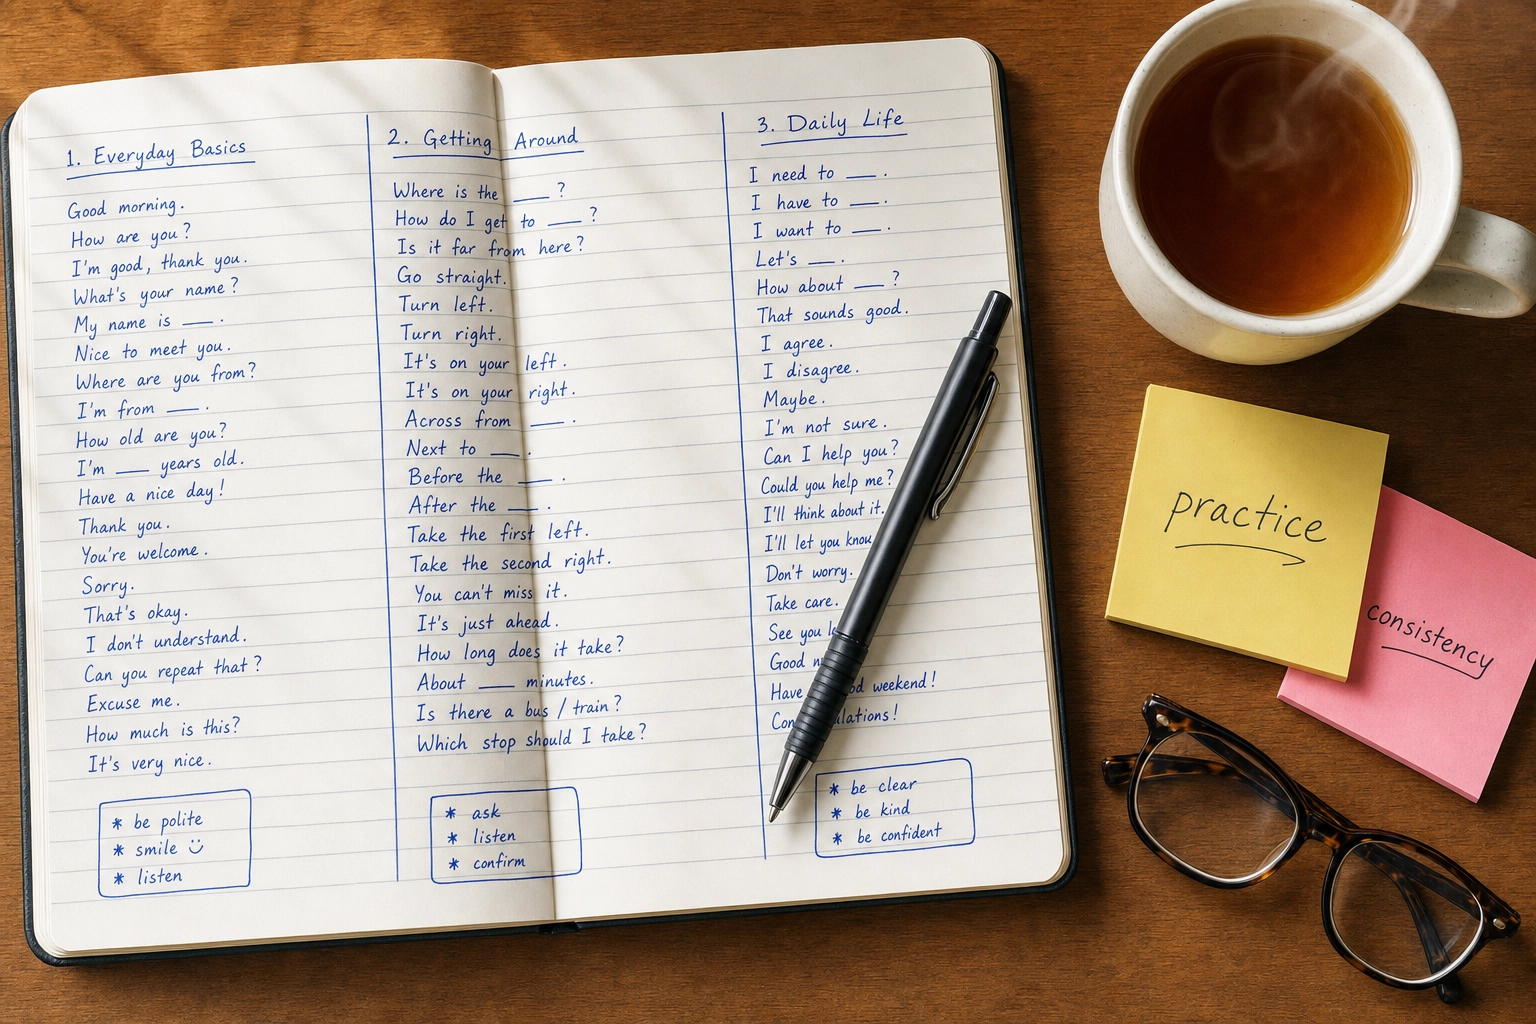 1. Everyday Basics
Good morning.
How are you?
I'm good, thank you.
What's your name?
My name is ___.
Nice to meet you.
Where are you from?
I'm from ___.
How old are you?
I'm ___ years old.
Have a nice day!
Thank you.
You're welcome.
Sorry.
That's okay.
I don't understand.
Can you repeat that?
Excuse me.
How much is this?
It's very nice.
* be polite
* smile ☺
* listen
2. Getting Around
Where is the ___?
How do I get to ___?
Is it far from here?
Go straight.
Turn left.
Turn right.
It's on your left.
It's on your right.
Across from ___.
Next to ___.
Before the ___.
After the ___.
Take the first left.
Take the second right.
You can't miss it.
It's just ahead.
How long does it take?
About ___ minutes.
Is there a bus / train?
Which stop should I take?
* ask
* listen
* confirm
3. Daily Life
I need to ___.
I have to ___.
I want to ___.
Let's ___.
How about ___?
That sounds good.
I agree.
I disagree.
Maybe.
I'm not sure.
Can I help you?
Could you help me?
I'll think about it.
I'll let you
Don't worry.
Take care.
See you
Good
Have weekend!
* be clear
* be kind
* be confident
practice
consistency